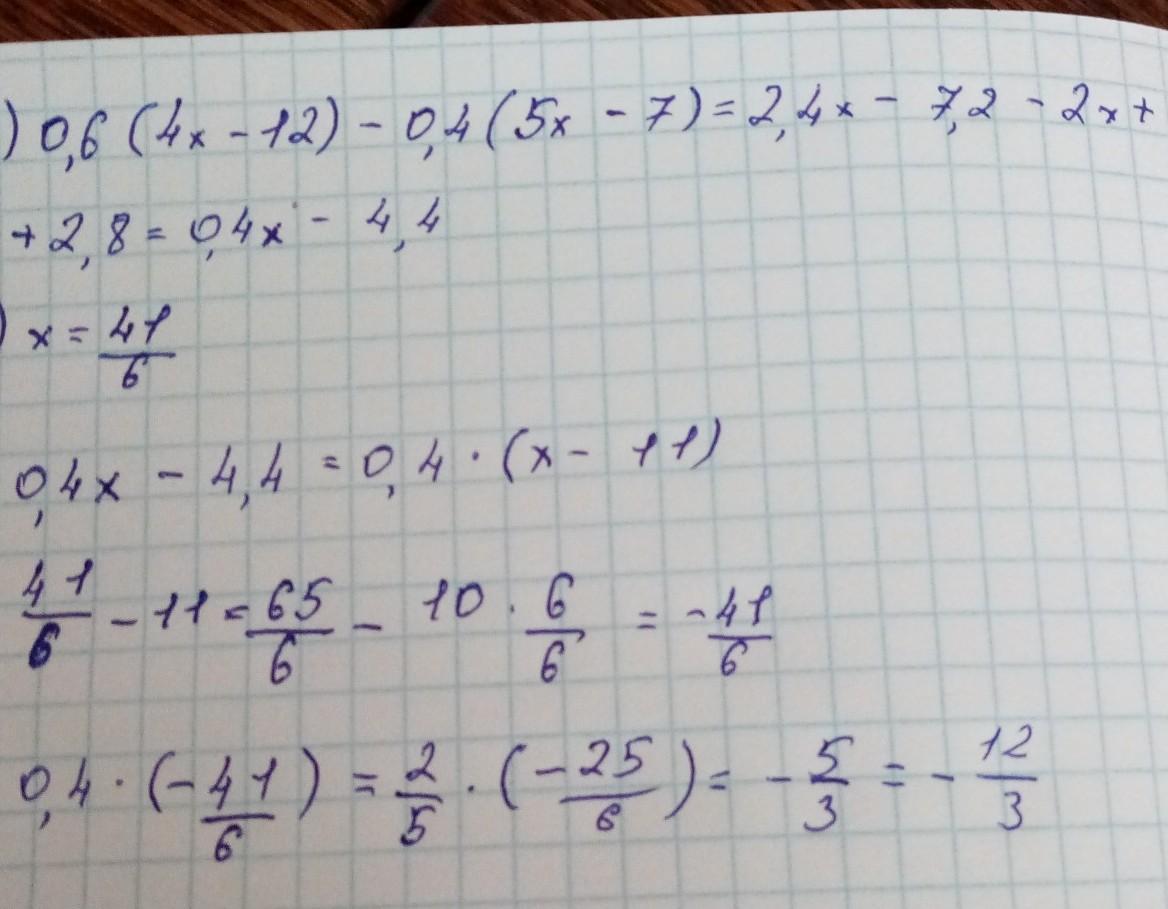 ) 0,6 (4x - 12) - 0,4 (5x - 7) = 2,4x - 7,2 - 2x +
+ 2,8 = 0,4x - 4,4
) x = 41/6
0,4x - 4,4 = 0,4 · (x - 11)
41/6 - 11 = 65/6 - 10 · 6/6 = -41/6
0,4 · (-41/6) = 2/5 · (-25/6) = -5/3 = -12/3